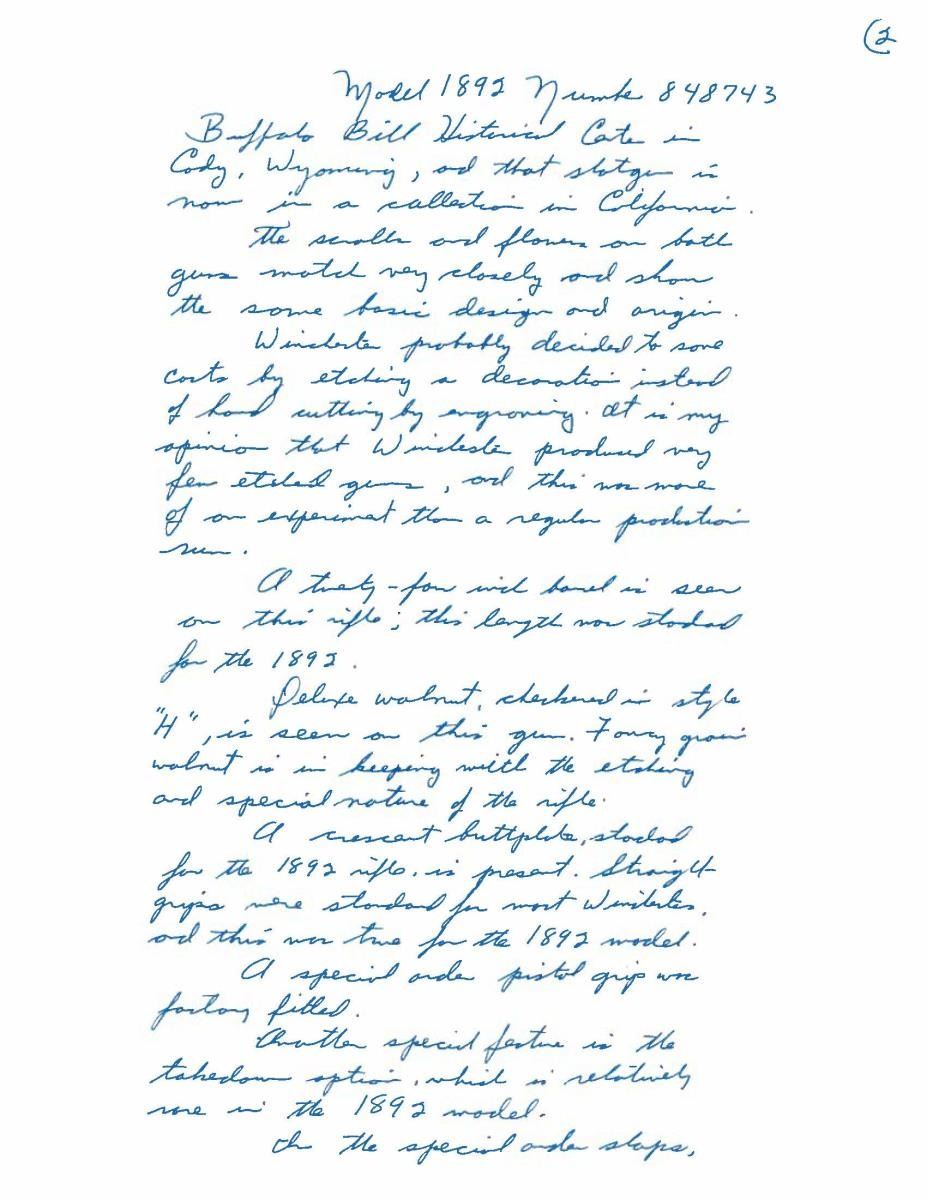 (2
Model 1892 Number 848743
Buffalo Bill Historical Center in
Cody, Wyoming, and that shotgun is
now in a collection in California.
The scrolls and flowers on both
guns match very closely and show
the same basic design and origin.
Winchester probably decided to save
costs by etching a decoration instead
of hand cutting by engraving. It is my
opinion that Winchester produced very
few etched guns, and this was more
of an experiment than a regular production
run.
A twenty-four inch barrel is seen
on this rifle; this length was standard
for the 1892.
Deluxe walnut, checkered in style
"H", is seen on this gun. Fancy grain
walnut is in keeping with the etching
and special nature of the rifle.
A crescent buttplate, standard
for the 1892 rifle, is present. Straight
grips were standard for most Winchesters,
and this was true for the 1892 model.
A special order pistol grip was
factory fitted.
Another special feature is the
takedown option, which is relatively
rare in the 1892 model.
In the special order shops,